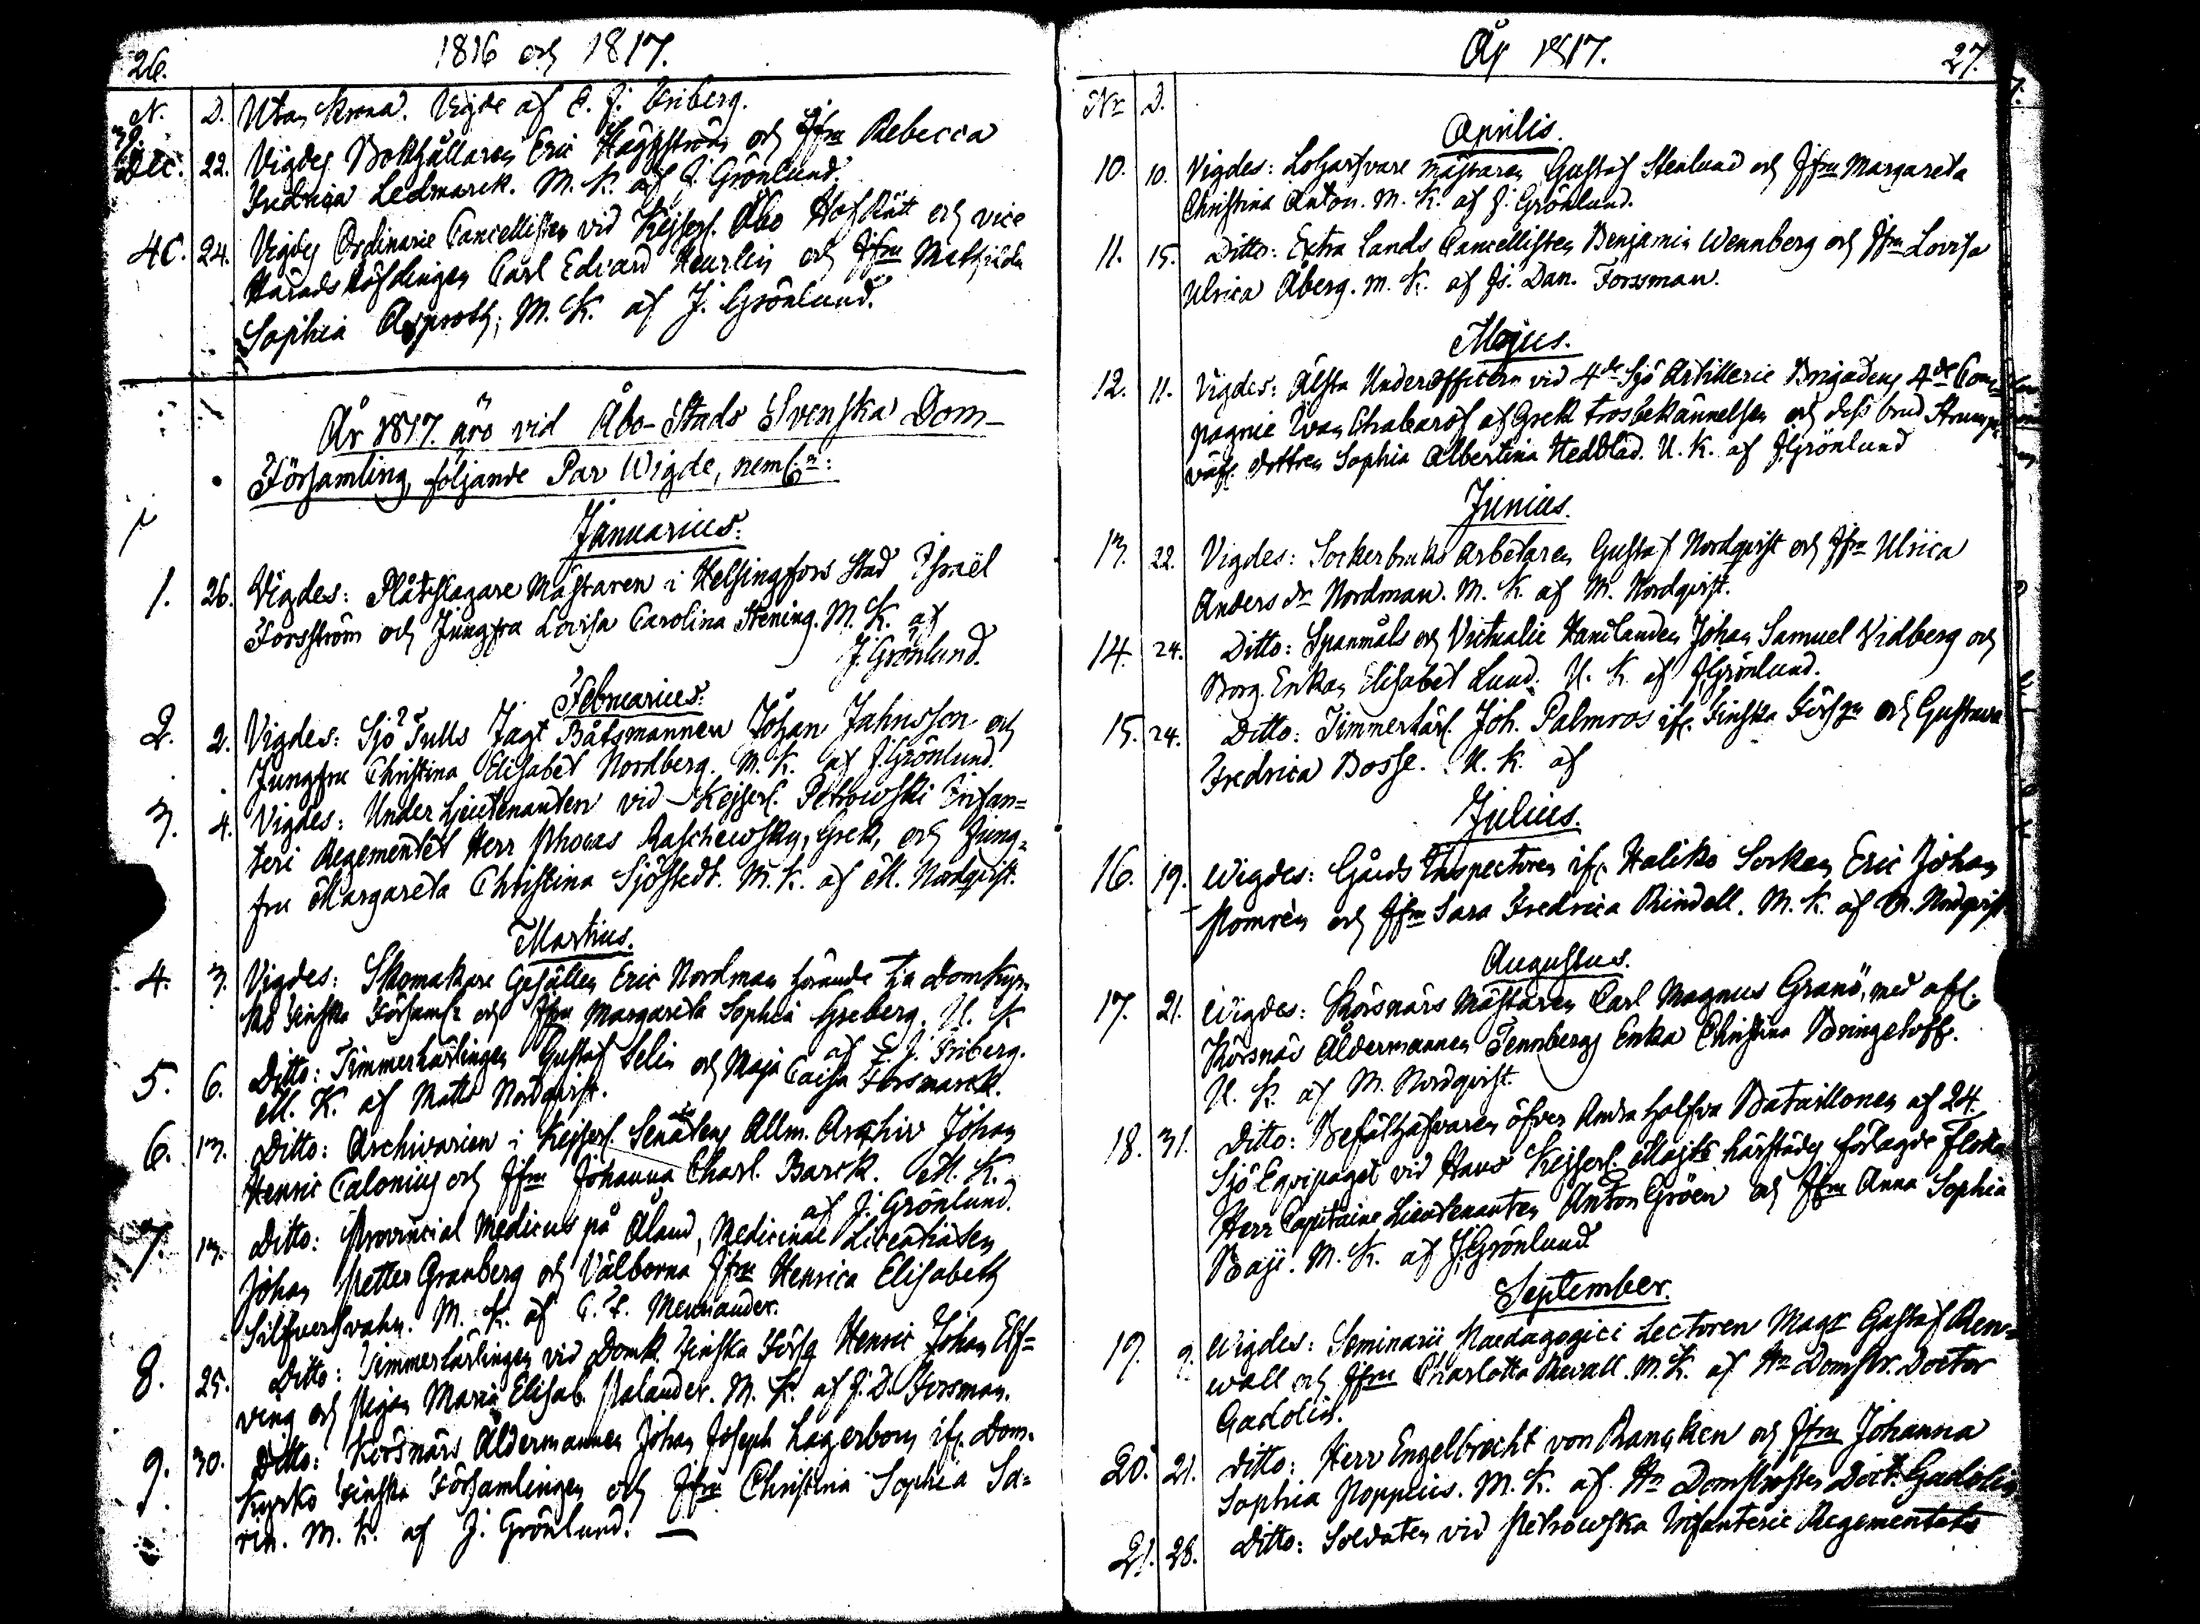 26.
1816 och 1817.
N. D. Utan Krona. Vigde af E. J. Friberg.
39. Dec. 22. Vigdes Bokhållaren Eric Häggström och Jfru Rebecca
Fredrica Ledmarck. M. K. af J. Grönlund.
40. 24. Vigdes Ordinarie Cancellisten vid Kejserl. Åbo HofRätt och vice
Häradshöfdingen Carl Edvard Heurlin och Jfru Mathilda
Sophia Asproth, M. K. af J. Grönlund.
År 1817 äro vid Åbo-Stads Svenska Dom-
Församling, följande Par Wigde, neml:
Januarius.
1. 26. Vigdes: Plåtslagare Mästaren i Helsingfors Stad Israël
Forsström och Jungfru Lovisa Carolina Stening. M. K. af
J. Grönlund.
Februarius.
2. 2. Vigdes: Sjö Tulls Jagt Båtsmannen Johan Jahnsson och
Jungfru Christina Elisabet Nordberg. M. K. af J. Grönlund.
3. 4. Vigdes: Under Lieutenanten vid Kejserl. Petrowski Infan=
teri Regementet Herr Raschewsky, Grek, och Jung=
fru Margareta Christina Sjöstedt. M. K. af M. Nordqvist.
Martius.
4. 3. Vigdes: Skomakare Gesällen Eric Nordman hörande t. Domkyr=
ko Finska Förs. och Jfru Margareta Sophia Greberg. U. K.
af E. J. Friberg.
5. 6. Ditto: Timmerkarlingen Gustaf Selin och Maja Caisa Forsmarck.
M. K. af Matts Nordqvist.
6. 13. Ditto: Archivarien i Kejserl. Senatens Allm. Archiv Johan
Henric Calonius och Jfru Johanna Charl. Barck. M. K.
af J. Grönlund.
7. 13. Ditto: Provincial Medicus på Åland, Medicinae Licentiaten
Johan Petter Granberg och Välborna Jfru Henrica Elisabeth
Silfversvahn. M. K. af C. F. Mennander.
8. 25. Ditto: Timmerkarlingen vid Domk. Finska Förs Henric Johan Elf=
ving och Pigan Maria Elisab. Palander. M. K. af J. D. Forsman.
9. 30. Ditto: Körsnärs Åldermannen Johan Joseph Lagerbom if. Dom=
kyrko Finska Församlingen och Jfru Christina Sophia Sa=
rin. M. K. af J. Grönlund.
År 1817. 27.
Nr D.
Aprilis.
10. 10. Vigdes: Lohgarfvare mästaren Gustaf Stenlund och Jfru Margareta
Christina Anton. M. K. af J. Grönlund.
11. 15. Ditto: Extra Lands Cancellisten Benjamin Wennberg och Jfru Lovisa
Ulrica Åberg. M. K. af Js. Dan. Forssman.
Majus.
12. 11. Vigdes: Älsta Underofficern vid 4de Sjö Artillerie Brigadens 4de Com=
pagnie Ivan Chabarof af Grek trosbekännelsen och dess brud Strump=
väf. dottren Sophia Albertina Hedblad. U. K. af J. Grönlund
Junius.
13. 22. Vigdes: Sockerbruks Arbetaren Gustaf Nordqvist och Jfru Ulrica
Anders dr Nordman. M. K. af M. Nordqvist.
14. 24. Ditto: Spanmåls och Victualie Handlanden Johan Samuel Vidberg och
Borg. Enkan Elisabet Lund. U. K. af J. Grönlund.
15. 24. Ditto: Timmerkarl. Joh. Palmros if. Finska Förs och Gustava
Fredrica Bosse. U. K. af
Julius.
16. 19. Wigdes: Gårds Inspectoren if. Haliko Sockn Eric Johan
Pomrén och Jfru Sara Fredrica Rindell. M. K. af M. Nordqvist.
Augustus.
17. 21. Wigdes: Körsnärs Mästaren Carl Magnus Granö, med afl.
Körsnärs Åldermannen Tennbergs Enka Christina Bringeloff.
U. K. af M. Nordqvist.
18. 31. Ditto: Befälhafvaren öfver Andra halfva Bataillonen af 24.
Sjö Eqvipaget vid Hans Kejserl. Majts härstädes förlagde Flotta
Herr Capitaine Lieutenanten Anton Gröen och Jfru Anna Sophia
Baji. M. K. af J. Grönlund.
September.
19. 9. Wigdes: Seminarii Paedagogici Lectoren Magr Gustaf Ren=
wall och Jfru Charlotta Rewall. M. K. af Hr Dompr. Doctor
Gadolin.
20. 21. Ditto: Herr Engelbrecht von Rancken och Jfru Johanna
Sophia Poppius. M. K. af Hr Domprosten Doct. Gadolin
21. 28. Ditto: Soldaten vid Petrowska Infanterie Regementets